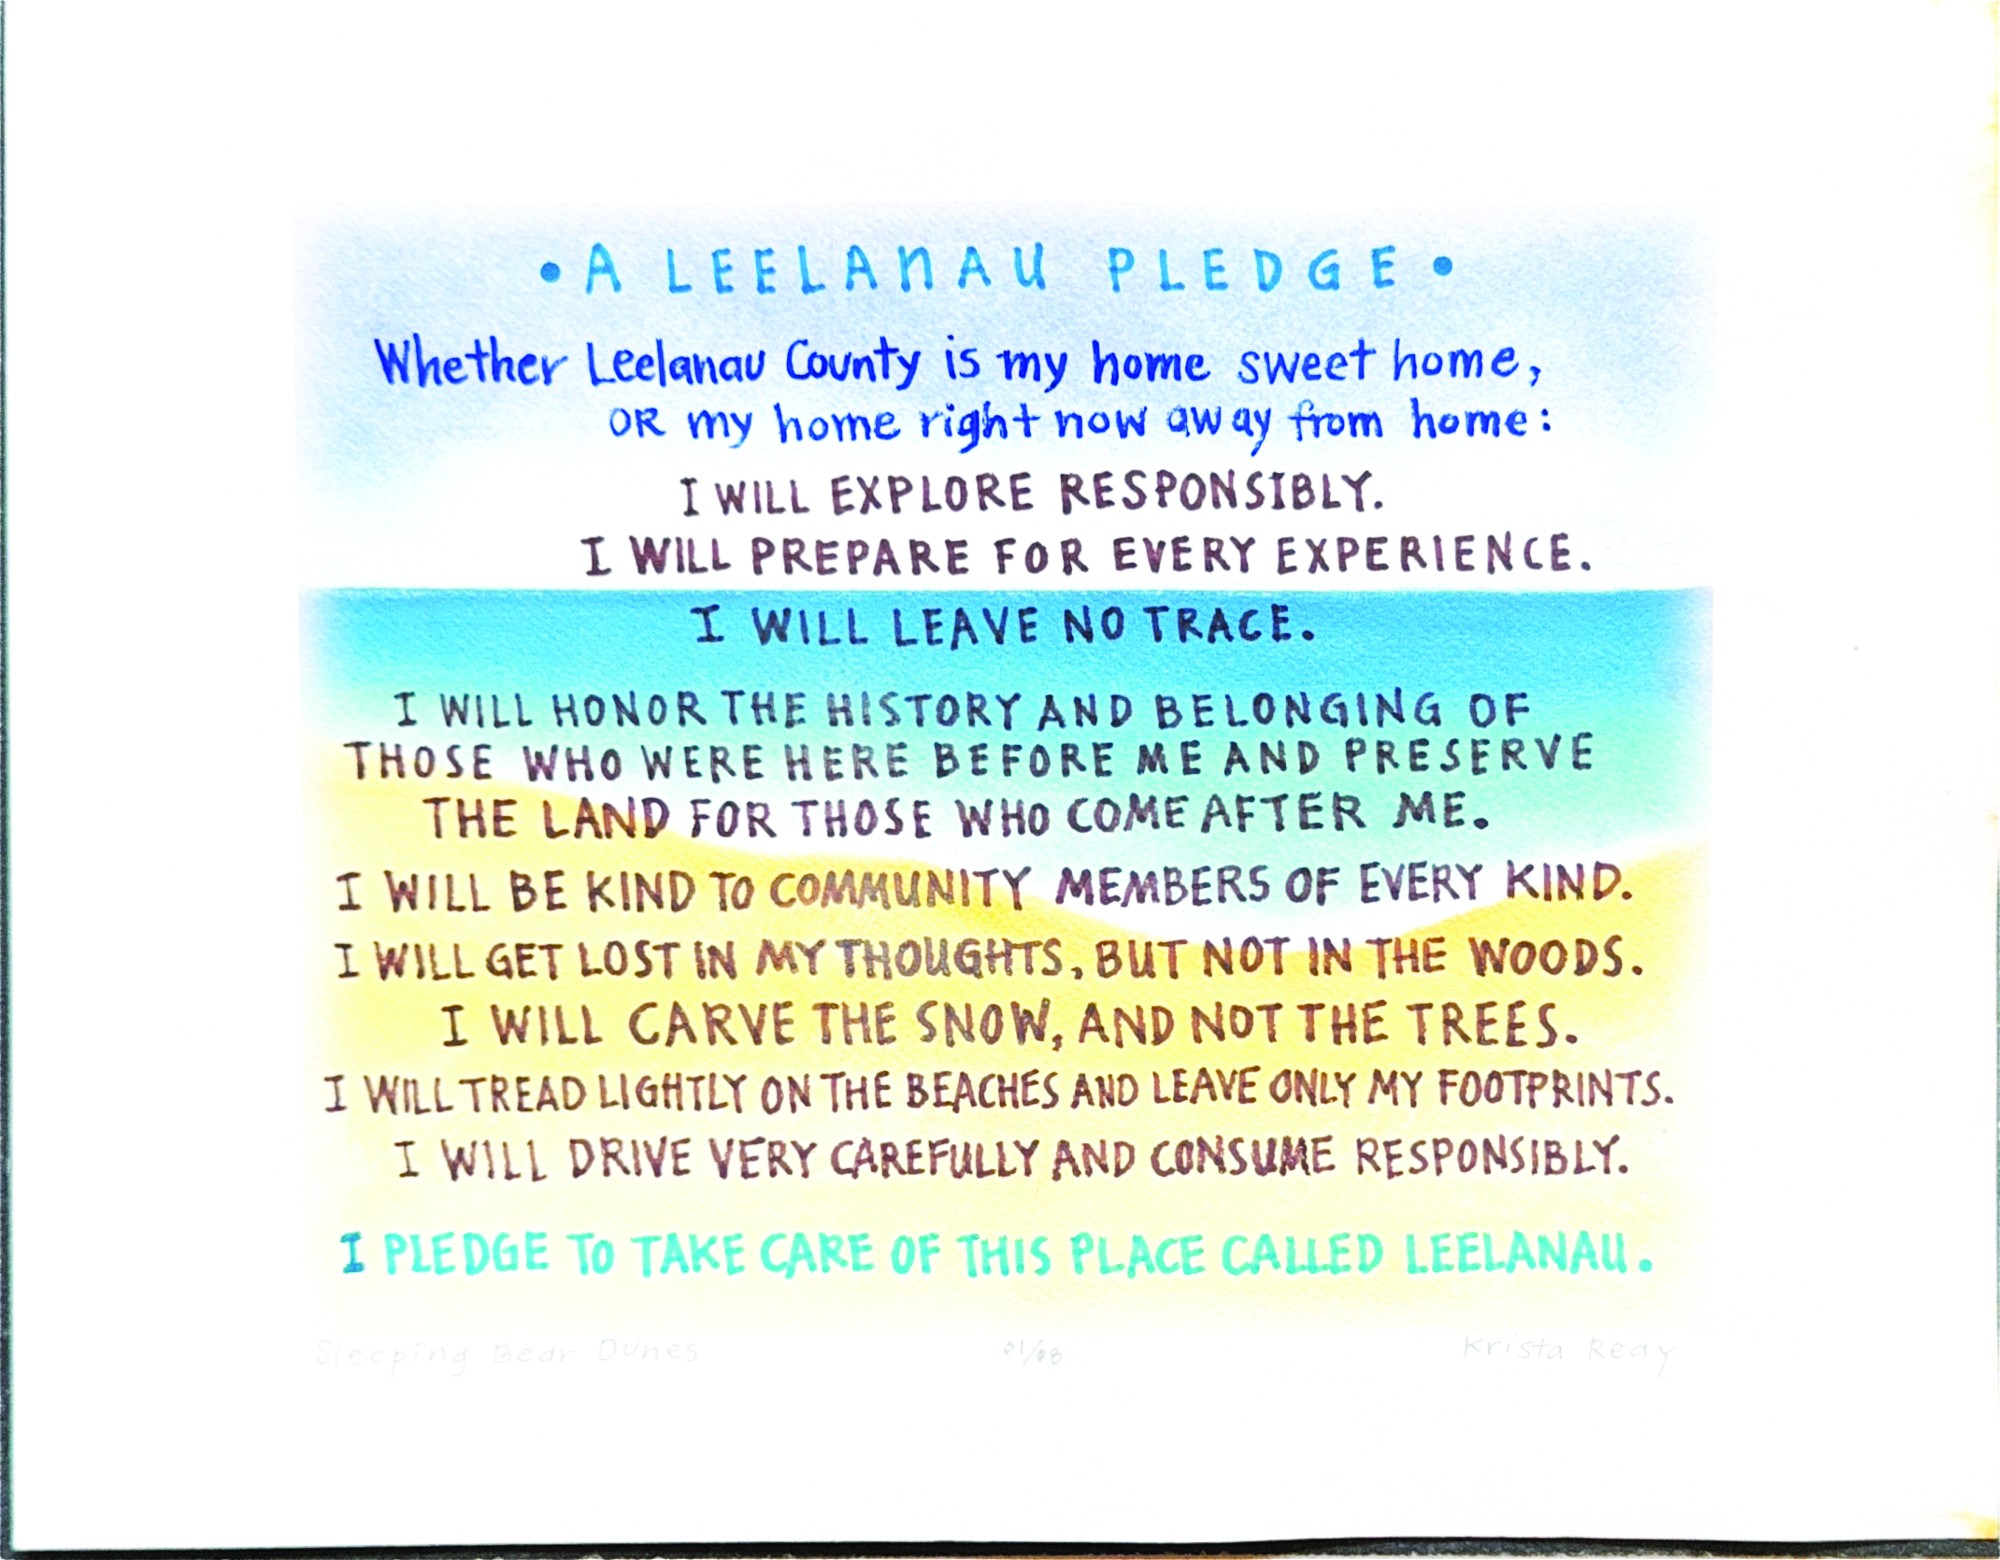 • A LEELANAU PLEDGE •
Whether Leelanau County is my home sweet home,
OR my home right now away from home:
I WILL EXPLORE RESPONSIBLY.
I WILL PREPARE FOR EVERY EXPERIENCE.
I WILL LEAVE NO TRACE.
I WILL HONOR THE HISTORY AND BELONGING OF
THOSE WHO WERE HERE BEFORE ME AND PRESERVE
THE LAND FOR THOSE WHO COME AFTER ME.
I WILL BE KIND TO COMMUNITY MEMBERS OF EVERY KIND.
I WILL GET LOST IN MY THOUGHTS, BUT NOT IN THE WOODS.
I WILL CARVE THE SNOW, AND NOT THE TREES.
I WILL TREAD LIGHTLY ON THE BEACHES AND LEAVE ONLY MY FOOTPRINTS.
I WILL DRIVE VERY CAREFULLY AND CONSUME RESPONSIBLY.
I PLEDGE TO TAKE CARE OF THIS PLACE CALLED LEELANAU.
Sleeping Bear Dunes 01/08 Krista Reay